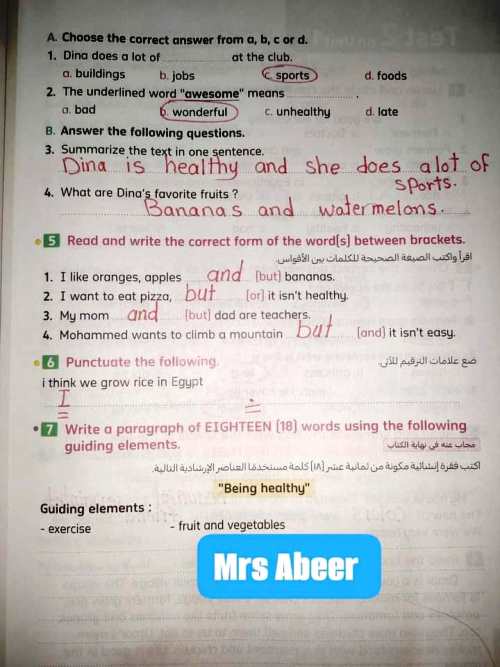 A. Choose the correct answer from a, b, c or d.
1. Dina does a lot of at the club.
a. buildings b. jobs c. sports d. foods
2. The underlined word "awesome" means .
a. bad b. wonderful c. unhealthy d. late
B. Answer the following questions.
3. Summarize the text in one sentence.
Dina is healthy and she does a lot of
sports.
4. What are Dina's favorite fruits ?
Bananas and watermelons.
5 Read and write the correct form of the word(s) between brackets.
اقرأ واكتب الصيغة الصحيحة للكلمات بين الأقواس.
1. I like oranges, apples and (but) bananas.
2. I want to eat pizza, but (or) it isn't healthy.
3. My mom and (but) dad are teachers.
4. Mohammed wants to climb a mountain but (and) it isn't easy.
6 Punctuate the following. ضع علامات الترقيم للآتي.
i think we grow rice in Egypt
I .
7 Write a paragraph of EIGHTEEN (18) words using the following
guiding elements. مجاب عنه في نهاية الكتاب
اكتب فقرة إنشائية مكونة من ثمانية عشر (١٨) كلمة مستخدمًا العناصر الإرشادية التالية.
"Being healthy"
Guiding elements :
- exercise - fruit and vegetables
Mrs Abeer